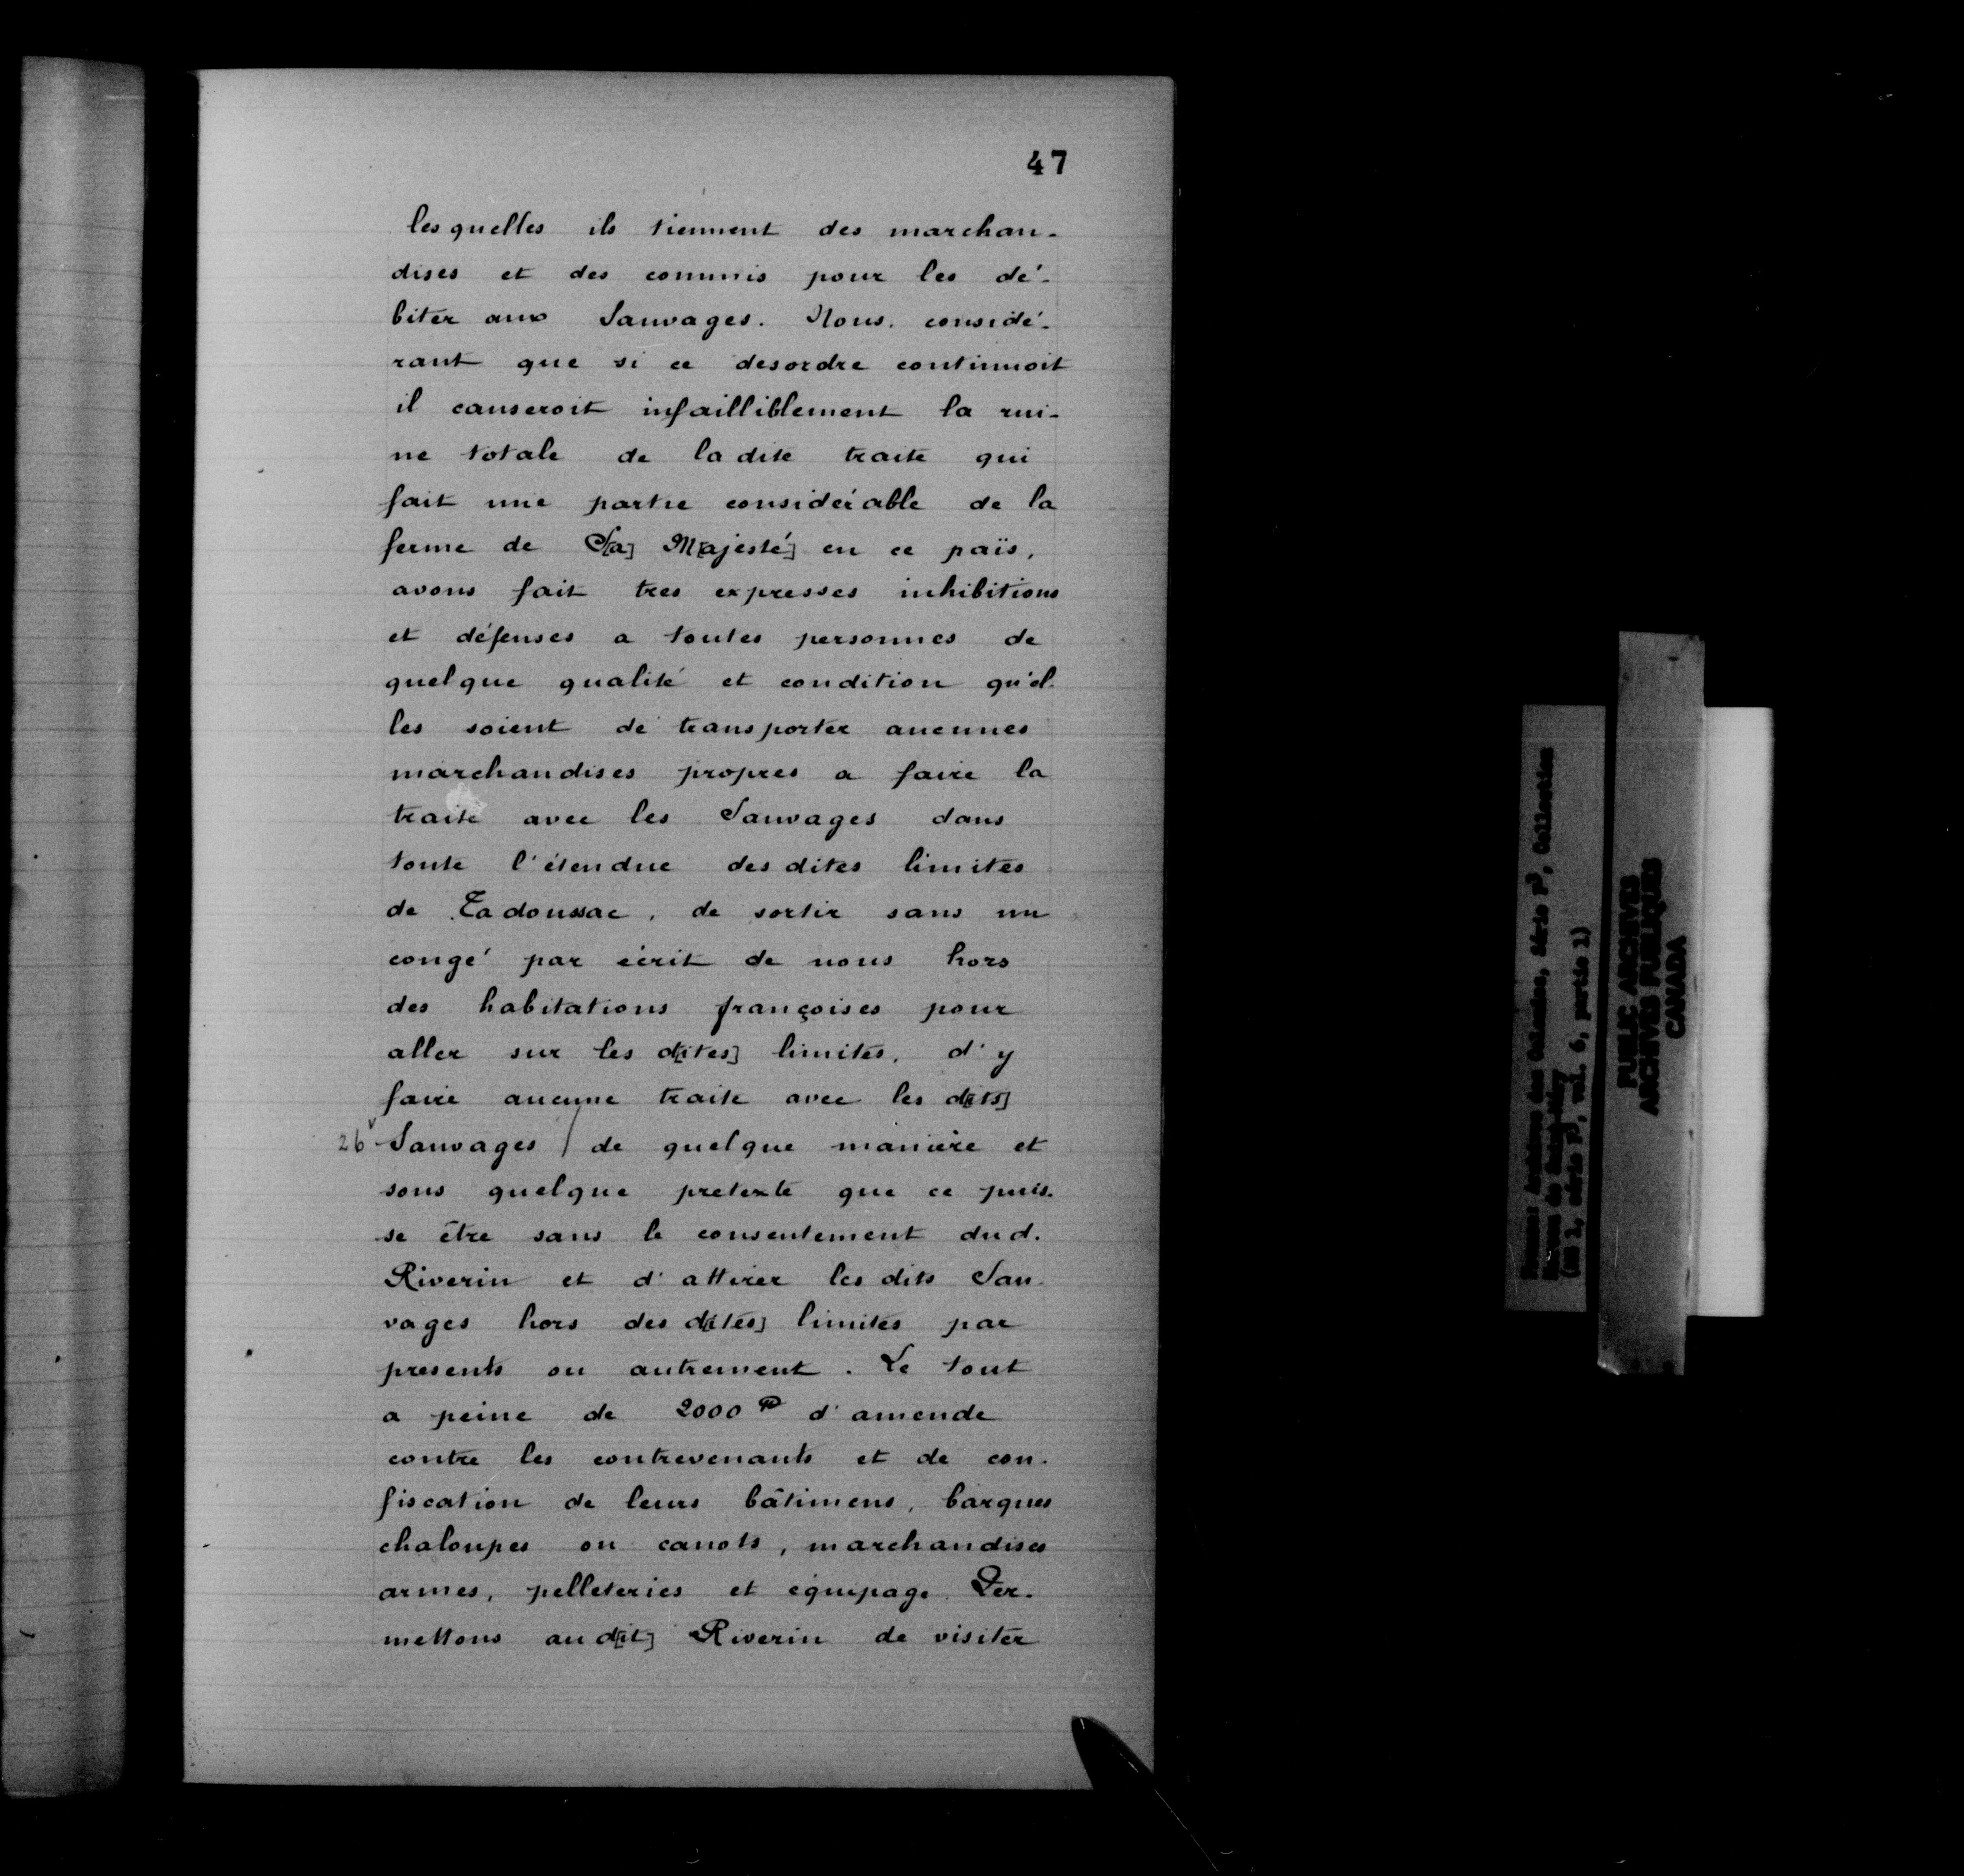 47
lesquelles ils tiennent des marchan-
dises et des commis pour les dé-
biter aux Sauvages. Nous, considé-
rant que si ce desordre continuoit
il causeroit infailliblement la rui-
ne totale de ladite traite qui
fait une partie considérable de la
ferme de S[a] M[ajesté] en ce païs,
avons fait tres expresses inhibitions
et défenses a toutes personnes de
quelque qualité et condition qu'el-
les soient de transporter aucunes
marchandises propres a faire la
traite avec les Sauvages dans
toute l'étendue desdites limites
de Tadoussac, de sortir sans un
congé par écrit de nous hors
des habitations françoises pour
aller sur les d[ites] limites, d'y
faire aucune traite avec les d[its]
26v Sauvages / de quelque manière et
sous quelque pretexte que ce puis-
se être sans le consentement dud.
Riverin et d'attirer lesdits Sau-
vages hors des d[ites] limites par
presents ou autrement. Le tout
a peine de 2000 ₶ d'amende
contre les contrevenants et de con-
fiscation de leurs bâtimens, barques
chaloupes ou canots, marchandises
armes, pelleteries et équipage. Per-
mettons aud[it] Riverin de visiter
France: Archives des Colonies, Série F3, Collection
Moreau de Saint-Méry
(MG 1, série F3, vol. 6, partie 1)
PUBLIC ARCHIVES
ARCHIVES PUBLIQUES
CANADA